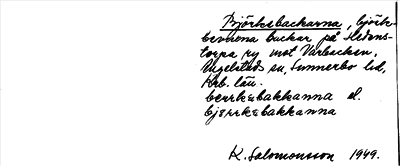 Björkebackarna, björk-
bevuxna backar på Hedens-
torpa ry mot Varbacken,
Angelstads sn, Sunnerbo hd,
Krb. län.
berrkɛbakkanna el.
bjerrkɛbakkanna
K. Salomonsson 1949.